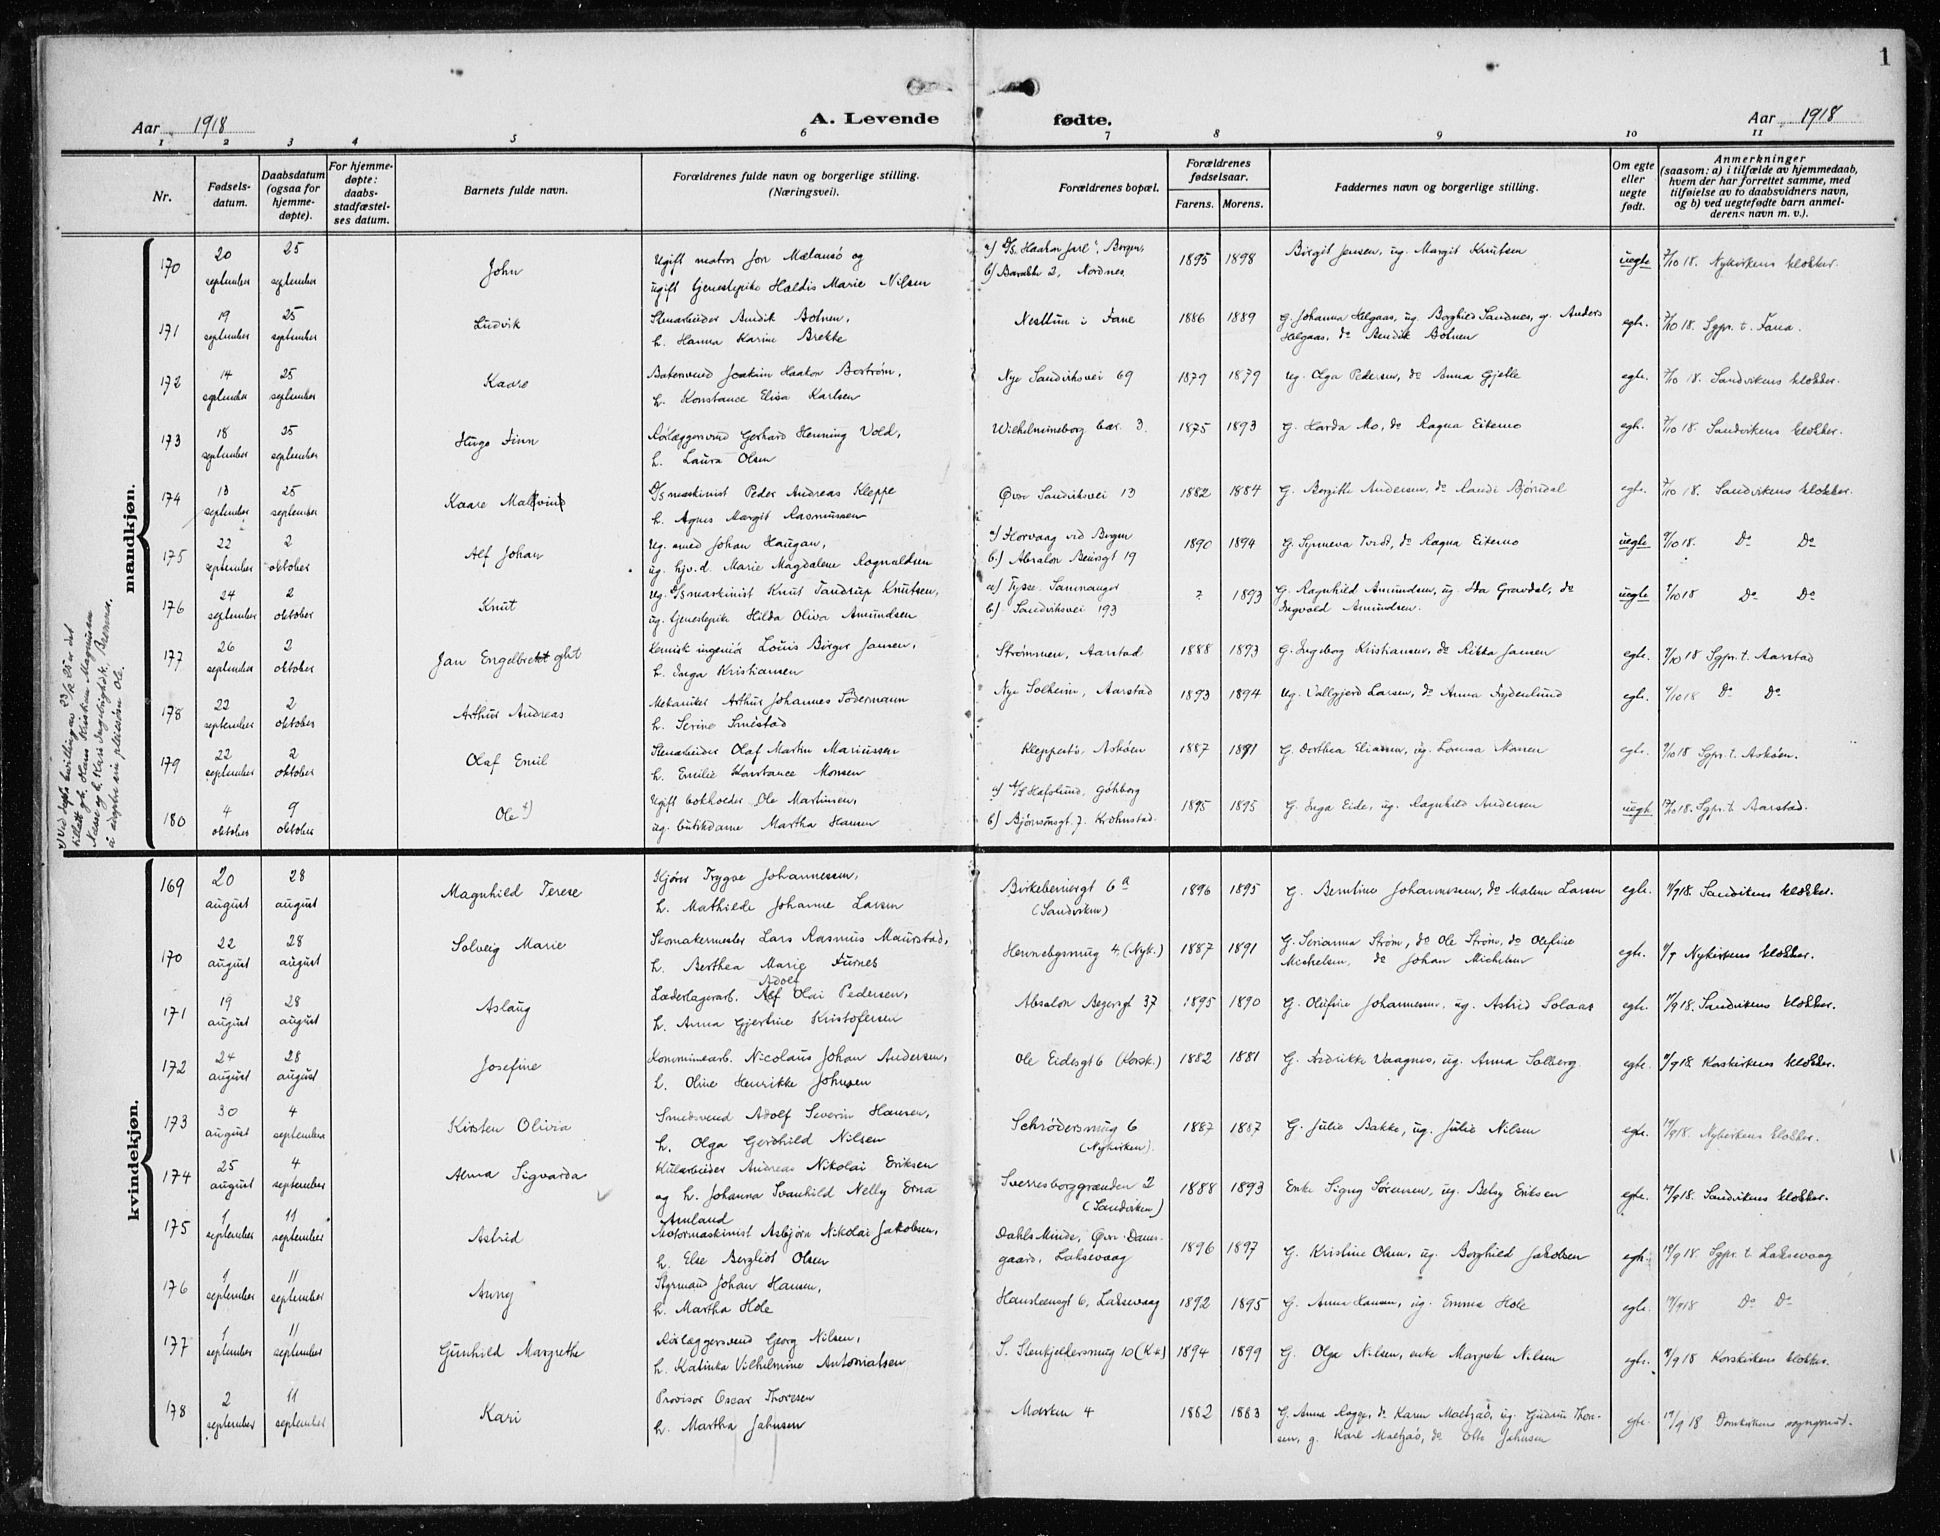 1
Aar 1918 A. Levende fødte. Aar 1918
1 2 3 4 5 6 7 8 9 10 11
Nr. Fødsels-datum. Daabsdatum (ogsaa for hjemme-døpte). For hjemme-døpte: daabs-stadfæstel-ses datum. Barnets fulde navn. Forældrenes fulde navn og borgerlige stilling. (Næringsvei). Forældrenes bopæl. Forældrenes fødselsaar. Farens. Morens. Faddernes navn og borgerlige stilling. Om egte eller uegte født. Anmerkninger (saasom: a) i tilfælde av hjemmedaab, hvem der har forrettet samme, med tilføielse av to daabsvidners navn, og b) ved uegtefødte barn anmel-derens navn m. v.).
mandkjøn.
170 20 september 25 september John Ugift matros Jon og
ugift Marie Nilsen a) D/S. "Haakon Jarl", Bergen, b) Barakke 2, Nordnes 1895 1898 Birgit Jensen, ug. Margit Knutsen uegte 7/10 18. Nykirkens klokker.
171 19 september 25 september Ludvik Stenarbeider Bendik Bolnen,
h. Hanna Karine Brekke Nesttun i Fane 1886 1889 G. Johanna Helgaas, ug. Borghild Sandnes, g. Anders
Helgaas, do Bendik Bolnen egte. 7/10 18. Sgpr. t. Fana.
172 14 september 25 september Kaare Joakim Haakon Boström,
h. Konstance Elisa Karlsen Nye Sandviksvei 69 1879 1879 Ug. Olga Pedersen, do Anna Gjelle egte. 7/10 18. Sandvikens klokker.
173 18 september 25 september Hugo Finn Rørlæggersvend Gerhard Henning Vold,
h. Laura Olsen Wilhelmineborg bar. 3. 1875 1893 G. Harda Mo, do Ragna Eitemo egte. 7/10 18. Sandvikens klokker.
174 13 september 25 september Kaare D/S maskinist Peder Andreas Kleppe
h. Agnes Margit Rasmussen Øvre Sandviksvei 13 1882 1884 G. Bergitte Andersen, do Randi Bjørndal egte. 7/10 18. Sandvikens klokker.
175 22 september 2 oktober Alf Johan Ug. smed Johan Haugan,
ug. hjv.d. Marie Magdalene Rognaldsen a) Florvaag ved Bergen
b.) Absalon Beiersgt 19 1890 1894 G. Synneva Tvedt, do Ragna Eitemo uegte 9/10 18. Do Do
176 24 september 2 oktober Knut Ug. D/S maskinist Knut Tandrup Knutsen,
ug. tjenestepike Hilda Oliva Amundsen a) Tysse. Samnanger
b) Sandviksvei 193 ? 1893 G. Ragnhild Amundsen, ug. Ida Gravdal, do
Ingvald Amundsen. uegte 9/10 18 Do Do
177 26 september 2 oktober Jan Kemisk ingeniør Louis Birger Jansen,
h. Inga Kristiansen Strømmen, Aarstad 1888 1893 G. Ingeborg Kristiansen, do Rikka Jansen egte. 9/10 18 Sgpr. t. Aarstad
178 22 september 2 oktober Arthur Andreas Mekaniker Arthur Johannes Södermann
h. Serine Smistad Nye Solheim, Aarstad 1893 1894 Ug. Valgjerd Larsen, do Anna Frydenlund egte. 9/10 18 Do Do
179 22 september 2 oktober Olaf Emil Stenarbeider Olaf Martin Mariussen
h. Emilie Konstance Monsen Kleppestø, Askøen 1887 1891 G. Dorthea Eliassen, ug. Lovisa Monsen egte. 9/10 18 Sgpr. t. Askøen.
180 4 oktober 9 oktober Ole x) Ugift bokholder Ole Martinsen,
ug. butikdame Martha Hansen a) D/S Hafslund, Göteborg
b) Bjørnsonsgt. 7. Krohnstad. 1895 1895 G. Inga Eide, ug. Ragnhild Andersen uegt. 17/10 18. Sgpr. t. Aarstad.
x) Ved deptS bevilling av 23/12 25 er det
tillatt gb. Hans Kristian Magnussen
Næse og h. Kari Ingebrigtsdtr., Bremnes,
å adoptere sin pleiesønn Ole.
kvindekjøn.
169 20 august 28 august Magnhild Terese Kjører Trygve Johannessen,
h. Mathilde Johanne Larsen Birkebeinersgt 6a
(Sandviken) 1896 1895 G. Berntine Johannessen, do Malene Larsen egte. 11/9 18. Sandvikens klokker.
170 22 august 28 august Solveig Marie Skomakermester Lars Rasmus Maurstad,
h. Berthea Marie Furnes Hennebysmug 4. (Nyk.) 1887 1891 G. Serianna Strøm, do Ole Strøm, do Olefine
Michelsen, do Johan Michelsen egte. Nykirkens klokker.
171 19 august 28 august Aslaug Læderlagerarb. Adolf Olai Pedersen,
h. Anna Gjertine Kristofersen Absalon Beyersgt 37 1895 1890 G. Olufine Johannessen, ug. Astrid Solaas egte. 11/9 18. Sandvikens klokker.
172 24 august 28 august Josefine Kommunearb. Nicolaus Johan Andersen,
h. Oline Henrikke Johnsen Ole Eidesgt 6 (Korsk.) 1882 1881 G. Fredrikke Vaagnes, ug. Anna Solberg. egte. 11/9 18. Korskirkens klokker.
173 30 august 4 september Kirsten Olivia Smedsvend Adolf Severin Hansen,
h. Olga Gerdhild Nilsen Schrödersmug 6
(Nykirken). 1887 1887 G. Julie Bakke, ug. Julie Nilsen egte. 17/9 18. Nykirkens klokker.
174 25 august 4 september Alma Sigvarda Kularbeider Andreas Nikolai Eriksen
og h. Johanna Svanhild Nelly Erna
Amland Sverresborggrænden 2
(Sandviken) 1888 1893 Enke Signy Sörensen, ug. Betsy Eriksen egte. 17/9 18. Sandvikens klokker.
175 1 september 11 september Astrid Motormaskinist Asbjørn Nikolai Jakobsen,
h. Else Bergliot Olsen Dahls Minde, Øvre Dams-
gaard, Laksevaag 1896 1897 G. Kristine Olsen, ug. Borghild Jakobsen egte. 19/9 18. Sgpr. t. Laksevaag
176 1 september 11 september Anny Styrmand Johan Hansen,
h. Martha Hole Hansteensgt 6, Laksevaag 1892 1895 G. Anna Hansen, ug. Emma Hole egte. 19/9 18 Do Do
177 1 september 11 september Gunhild Margrethe Rørlæggersvend Georg Nilsen,
h. Katinka Vilhelmine Antoniatsen S. Stenkjeldersmug 10 (K.k.) 1894 1899 G. Olga Nilsen, enke Margrete Nilsen egte. 19/9 18 Korskirkens klokker.
178 2 september 11 september Kari Provisor Oscar Thoresen
h. Martha Jahnsen Marken 4 1882 1883 G. Anna Rogge, do Karen Maltzaö, ug. Gudrun Thore-
sen, g. Karl Maltzaö, do Otto Jahnsen egte. 19/9 18 Domkirkens